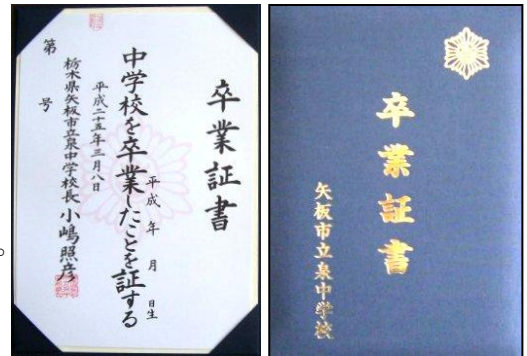 卒業証書
平成 年 月 日生
中学校を卒業したことを証する
平成二十五年三月八日
栃木県矢板市立泉中学校長 小嶋照彦
第 号
卒業証書
矢板市立泉中学校